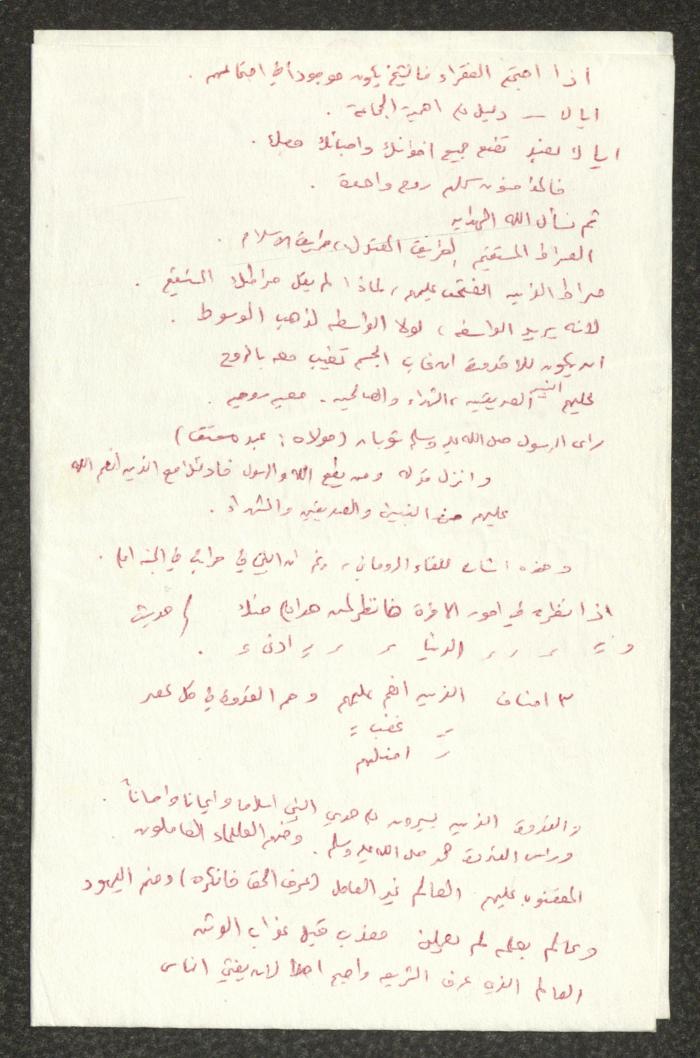 أذا اجتمع الفقراء فالشيخ يكون موجوداً في اجتماعهم .
اياك — دليل على اهمية الجماعة .
اياك نعبد تضع جميع اخوانك واحبائك معك .
فالمؤمنون كلهم روح واحدة .
ثم نسأل الله الهداية
الصراط المستقيم الطريق المعتدل ، طريق الاسلام .
صراط الذين انعمت عليهم ، لماذا لم يقل صراطك المستقيم .
لانه يريد الواسطه ، لولا الواسطه لذهب الموسوط .
ان يكون لك قدوة ان غاب الجسم تغيب معه بالروح
عليهم النبيين الصديقين ، الشهداء والصالحين . معيه روحيه .
راى الرسول صلى الله عليه وسلم ثوبان (مولاه : عبد معتق)
وانزل قوله ومن يطع الله والرسول فاولئك مع الذين أنعم الله
عليهم من النبيين والصديقين والشهداء .
وهذه اشارة للقاء الروحاني ، رغم ان النبي في مراتب في الجنة
اذا نظرت في امور الآخرة فانظر لمن هو اعلى منك / حديث
و = = = الدنيا = = = ادنى = .
٣ اصناف الذين انعم عليهم وهم القدوة في كل عصر
= غضب =
= اضلهم
والقدوة الذين يسيرون على هدي النبي اسلاما وايمانا واحساناً
وراس القدوة محمد صلى الله عليه وسلم . ومنهم العلماء العاملون
المغضوب عليهم العالم غير العامل (عرف الحق فانكره) ومنهم اليهود
وعالم بعلمه لم يعملن معذب قبل عذاب الوثن
العالم الذي عرف الشريعه واصبح اهلا لان يفتي الناس